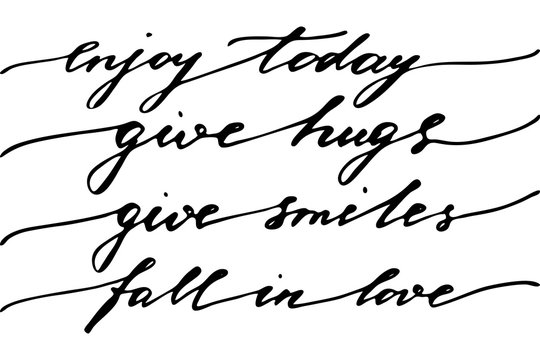 enjoy today
give hugs
give smiles
fall in love